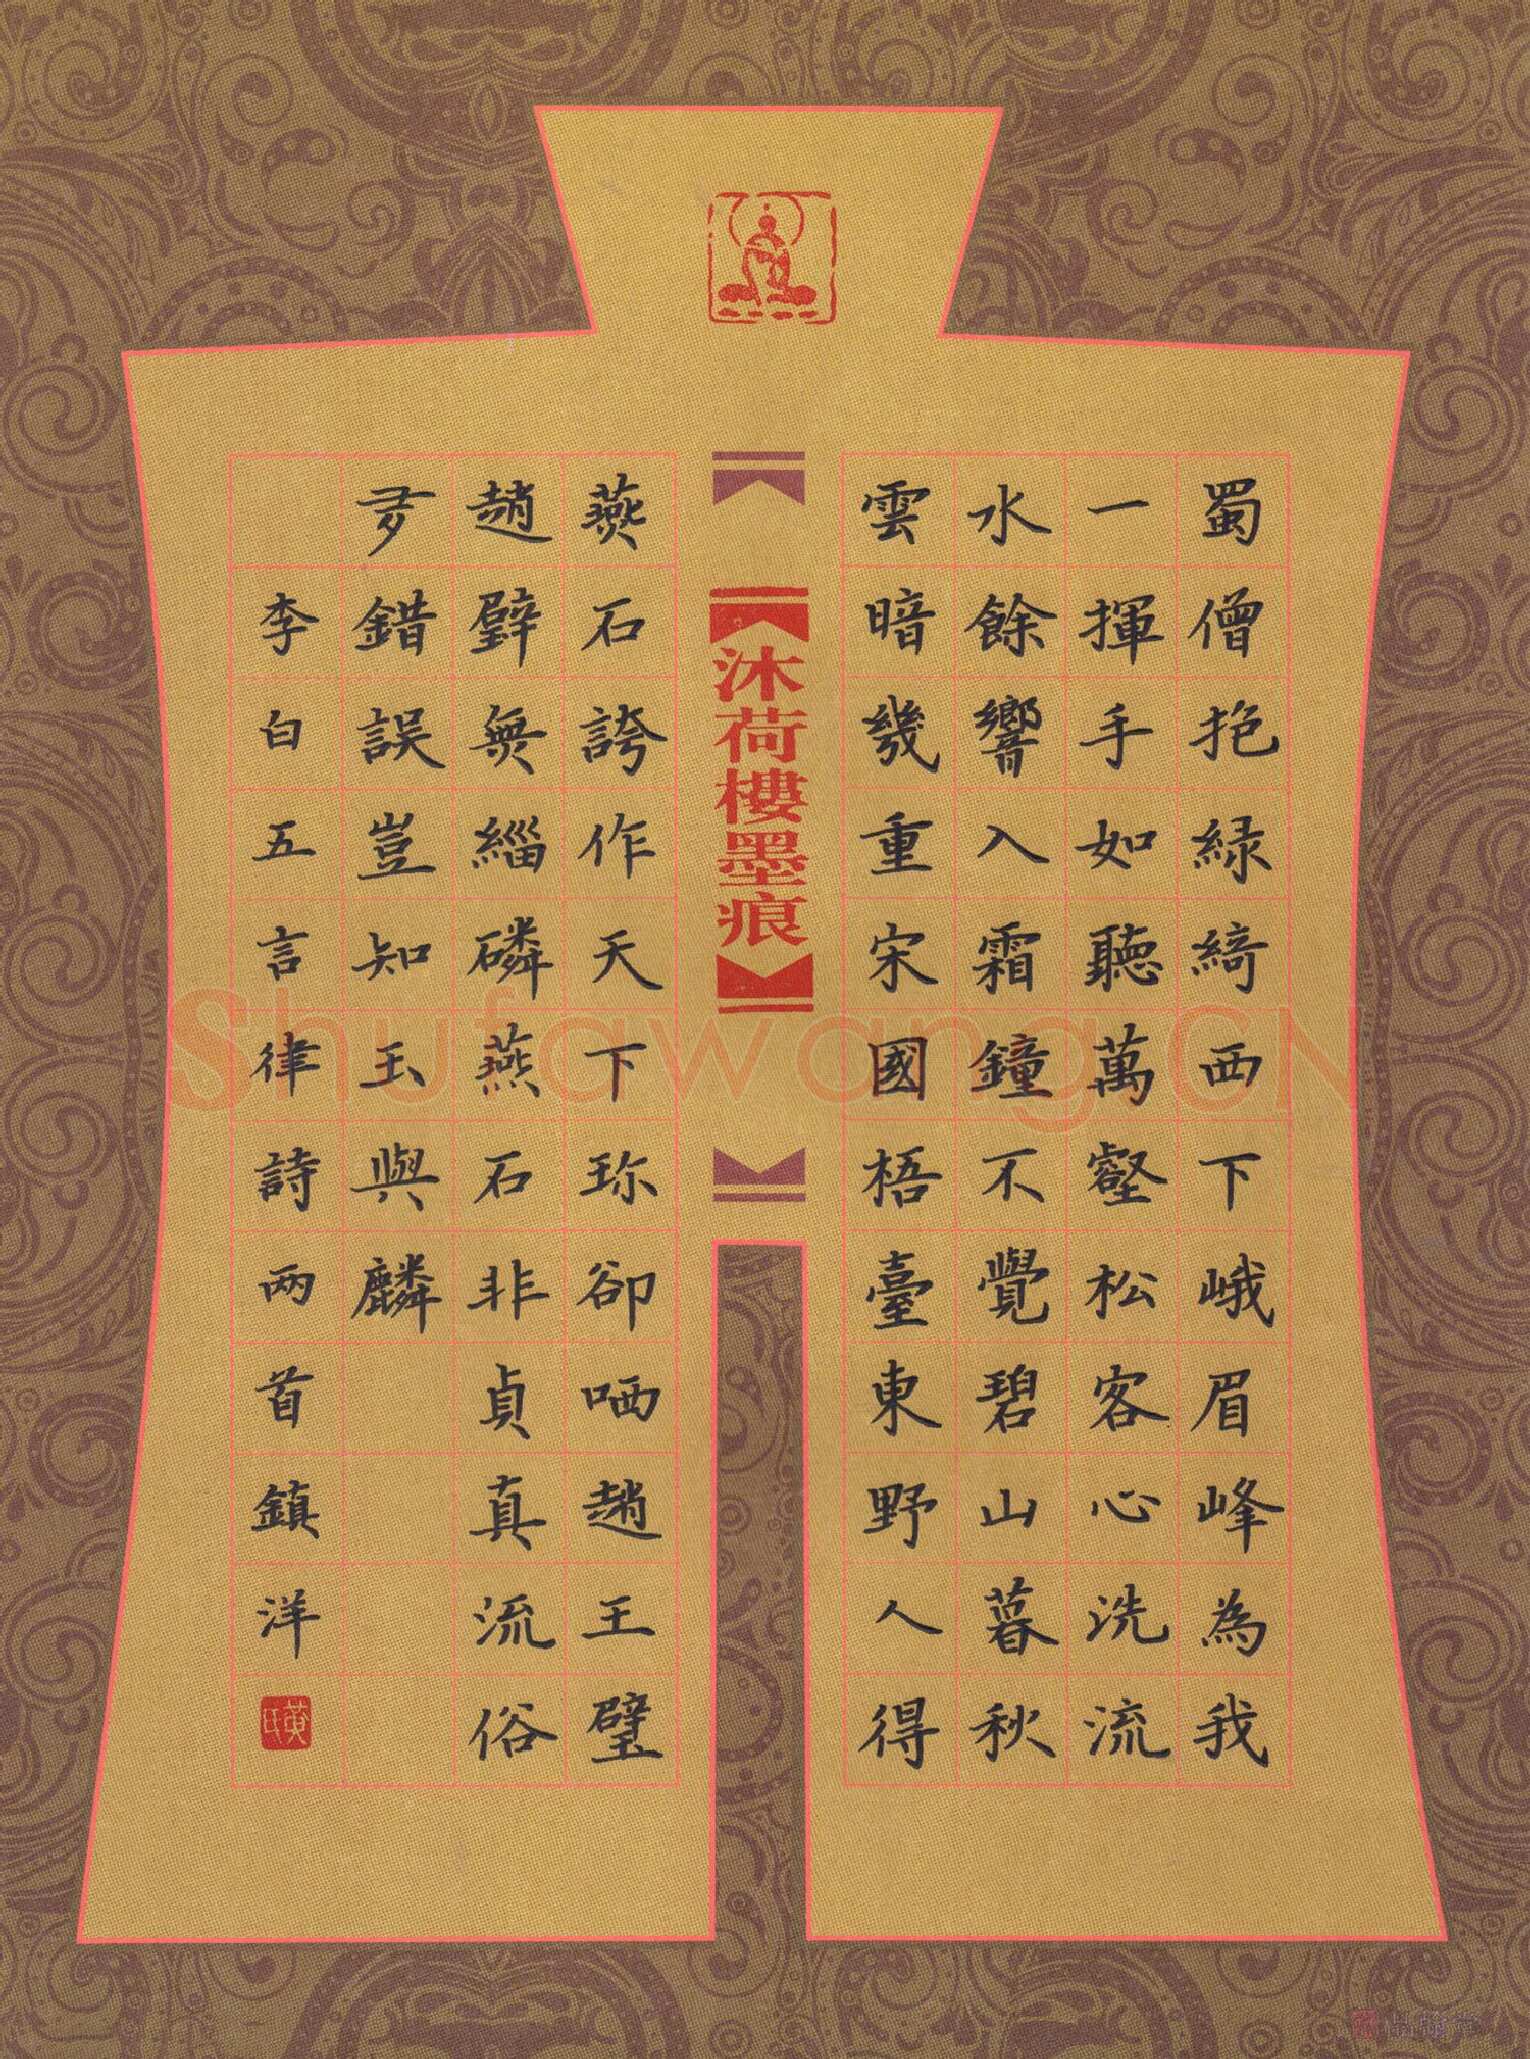 蜀僧抱緑綺西下峨眉峰為我
一揮手如聽萬壑松客心洗流
水餘響入霜鐘不覺碧山暮秋
雲暗幾重宋國梧臺東野人得
沐荷樓墨痕
燕石誇作天下珍卻哂趙王璧
趙璧無緇磷燕石非貞真流俗
多錯誤豈知玉與麟
李白五言律詩兩首鎮洋
黄氏
Shufawang.CN